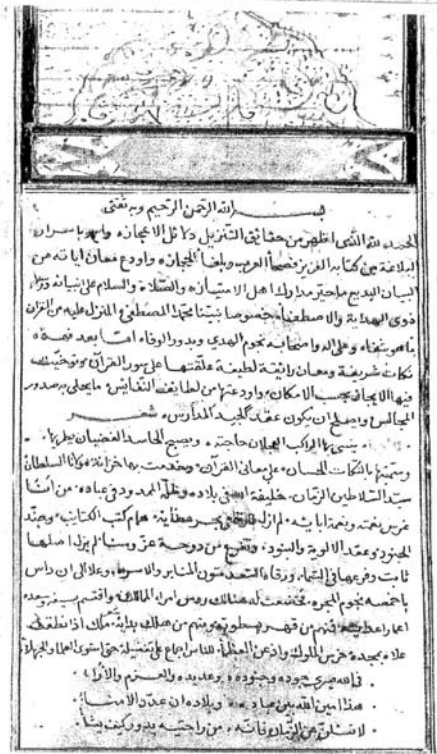 بسم الله الرحمن الرحيم وبه ثقتي
الحمد لله الذي اظهر من حقائق التنزيل دلائل الاعجاز
البلاغة من كتابه العزيز فصحاء العرب وبلغاء الحجاز واودع معان اياته من
البيان البديع ما حير مدارك اهل الامتياز والصلاة والسلام على انبيائه
ذوى الهداية والاصطفاء خصوصا نبينا محمد المصطفى المنزل عليه من القران
ما هو شفاء وعلى اله واصحابه نجوم الهدى وبدور الوفاء اما بعد فهذه
نكات شريفة ومعان رايقة لطيفة علقتها على سور القرآن وتوخيت
فيها الايجاز بحسب الامكان واودعتها من لطايف النفايس ما يحلى به صدور
المجالس ان يكون عقد الجيد المدارس شعر
ينسى بها الراكب العجلان حاجته ويصبح الحاسد الغضبان يطريها
وسميتها بالنكات الحسان على معاني القرآن وخدمت بها خزانة مولانا السلطان
سيد السلاطين الزمان خليفة الله في بلاده وظله الممدود في عباده من انشا
غرس نعمته ونعمة ابايه لم ازل كتب الكتايب وجند
الجنود وعقد الالوية والبنود وتفرع من دوحة عز وسنا لم يزل اصلها
ثابت وفرعها في السماء ورقاه السعد متون المنابر والاسرة وعلا الى ان داس
باخمصه نجوم المجرة فخضعت له هنالك رؤس امراء الممالك واقتسم سيفه وسعده
فمنهم من قهر بسطوته ومنهم من ملك اذا نطق في
علاه بمجده خرس الملوك واذعن العظماء للناس اجماع على تفضيله حتى استوى العلماء والجهلاء
فالله جوده وجنوده وعديده والعزم والاراء
هذا امين الله بين عباده وبلاده ان عدد الامناء
لا تسئلن عن الزمان فانه من راحتيه يدور كيف يشاء